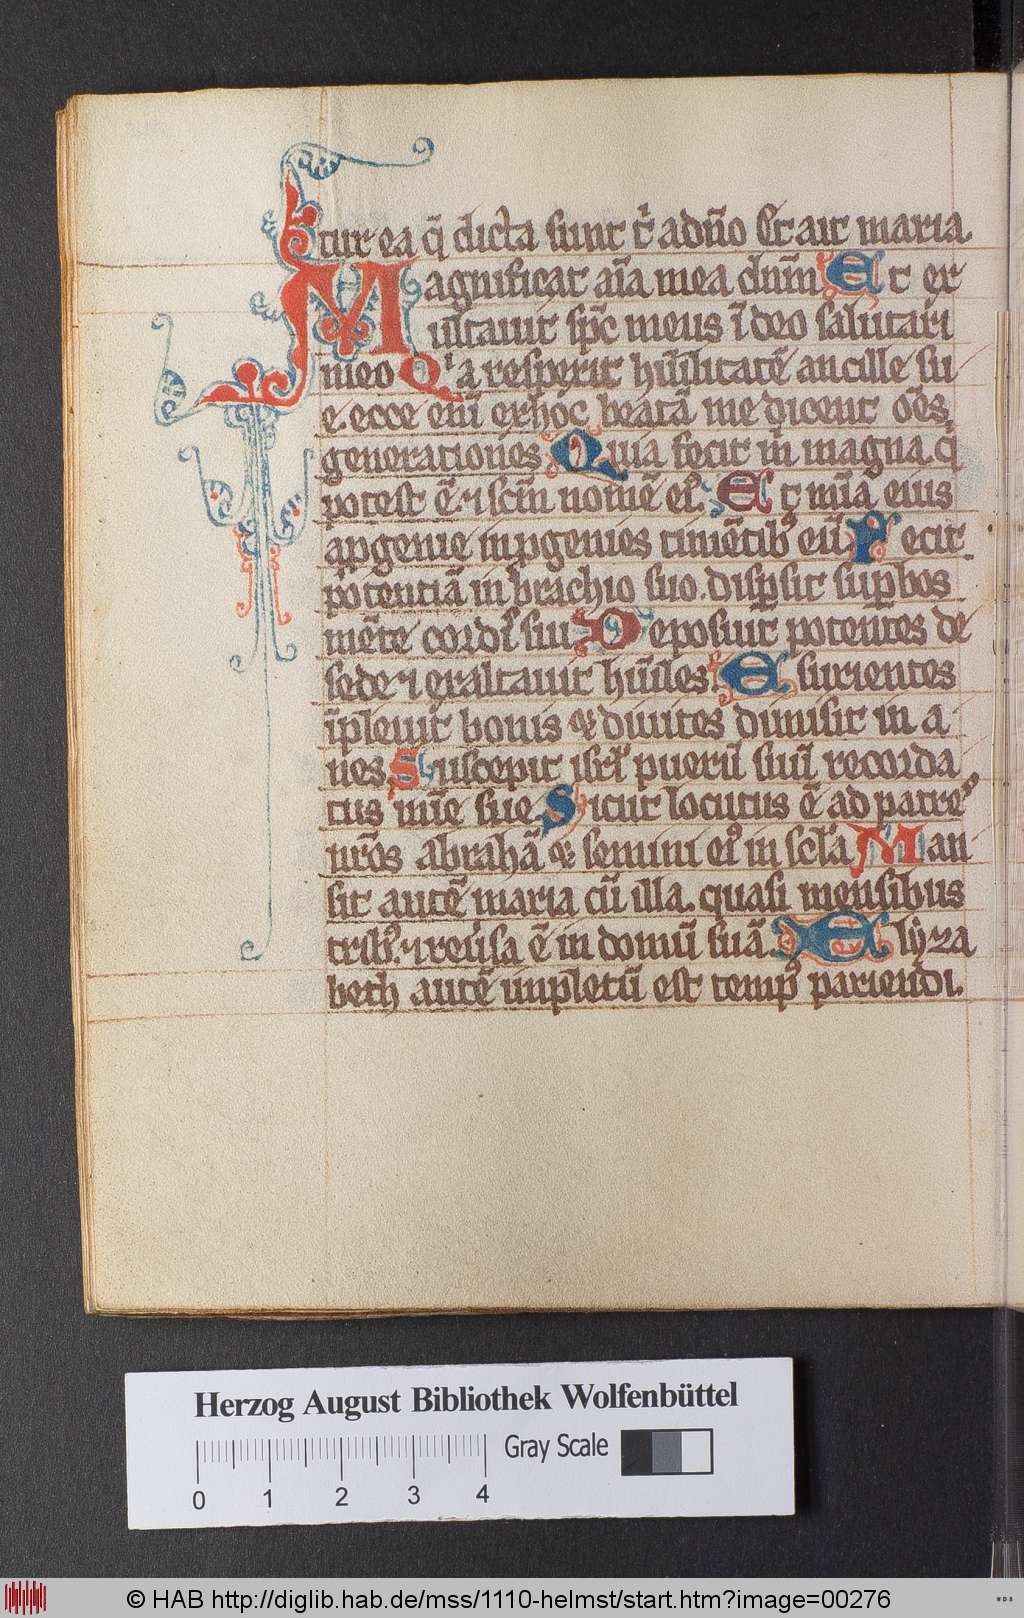 tur ea q̄ dicta sunt t' adn̄o Et ait maria.
Magnificat aīa mea dn̄m Et ex
ultauit sp̄c meus ī deo salutari
meo Qⁱa respexit hūilitatē ancille su
e. ecce eni̅ exhoc beatā me dicent om̄s
generationes Quia fecit m̄ magna q̄
potest ē. ⁊ scm̄ nomē ei᾽. Et mīa eius
apgenie inpgenies timētib᾽ eū Fecit
potentiā in brachio suo. dispsit supbos
mēte cordis sui Deposuit potentes de
sede ⁊ exaltauit hūiles. Esurientes
īpleuit bonis ⁊ diuites dimisit in a
nes Suscepit isrl̄ puerū suū recorda
tus mīe sue Sicut locutus ē ad patres
nr̄os abrahā ⁊ semini ei᾽ in scl̄a Man
sit autē maria cū illa. quasi mensibus
trib᾽. ⁊ reu̅sa ē in domū suā. Elyza
beth autē impletū est temp᾽ pariendi.
Herzog August Bibliothek Wolfenbüttel
Gray Scale
0 1 2 3 4
© HAB http://diglib.hab.de/mss/1110-helmst/start.htm?image=00276